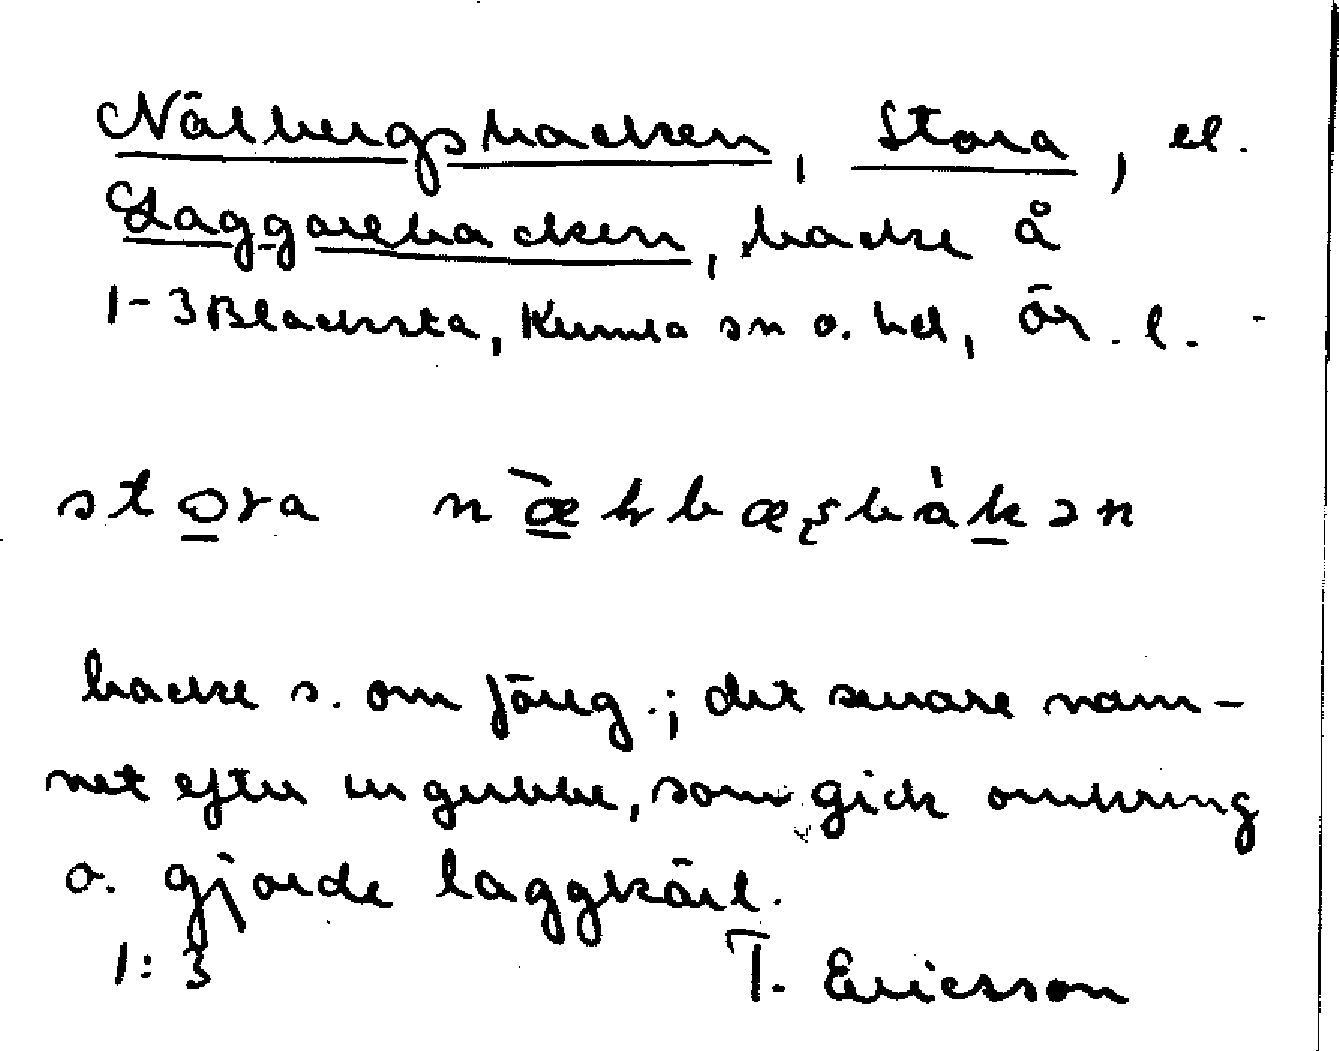 Nälbergsbacken, Stora, el.
Laggarebacken, backe å
1-3 Blacksta, Kumla sn o. hd, Ör. l.
backe s. om föreg.; det senare nam-
net efter en gubbe, som gick omkring
o. gjorde laggkärl.
1:3 T. Ericsson